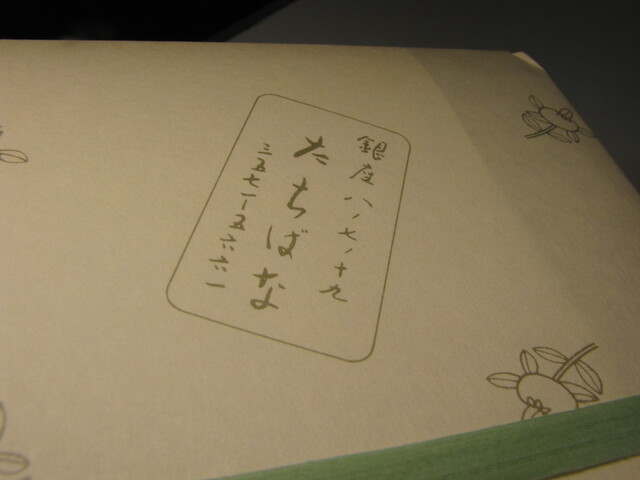 銀座八ノ七ノ十九
たちばな
三五七一-五六六一